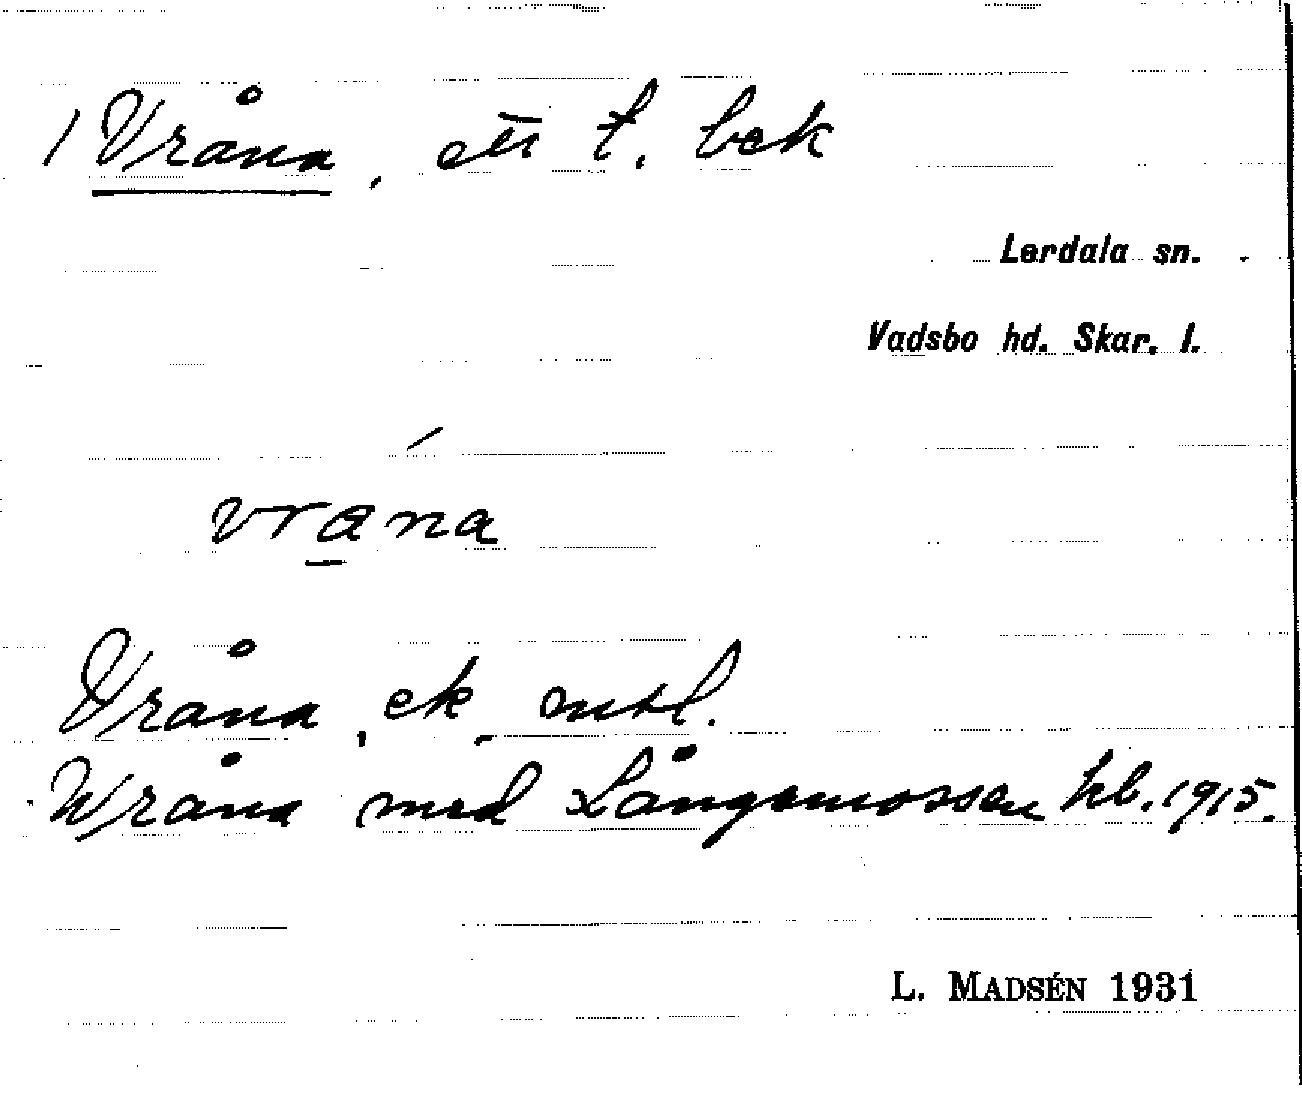 1 Vråna, ett t. bek
Lerdala sn.
Vadsbo hd. Skar. l.
vråna
Vråna, ek. mtl.
Wråna med Långemossen kb. 1915.
L. MADSÉN 1931